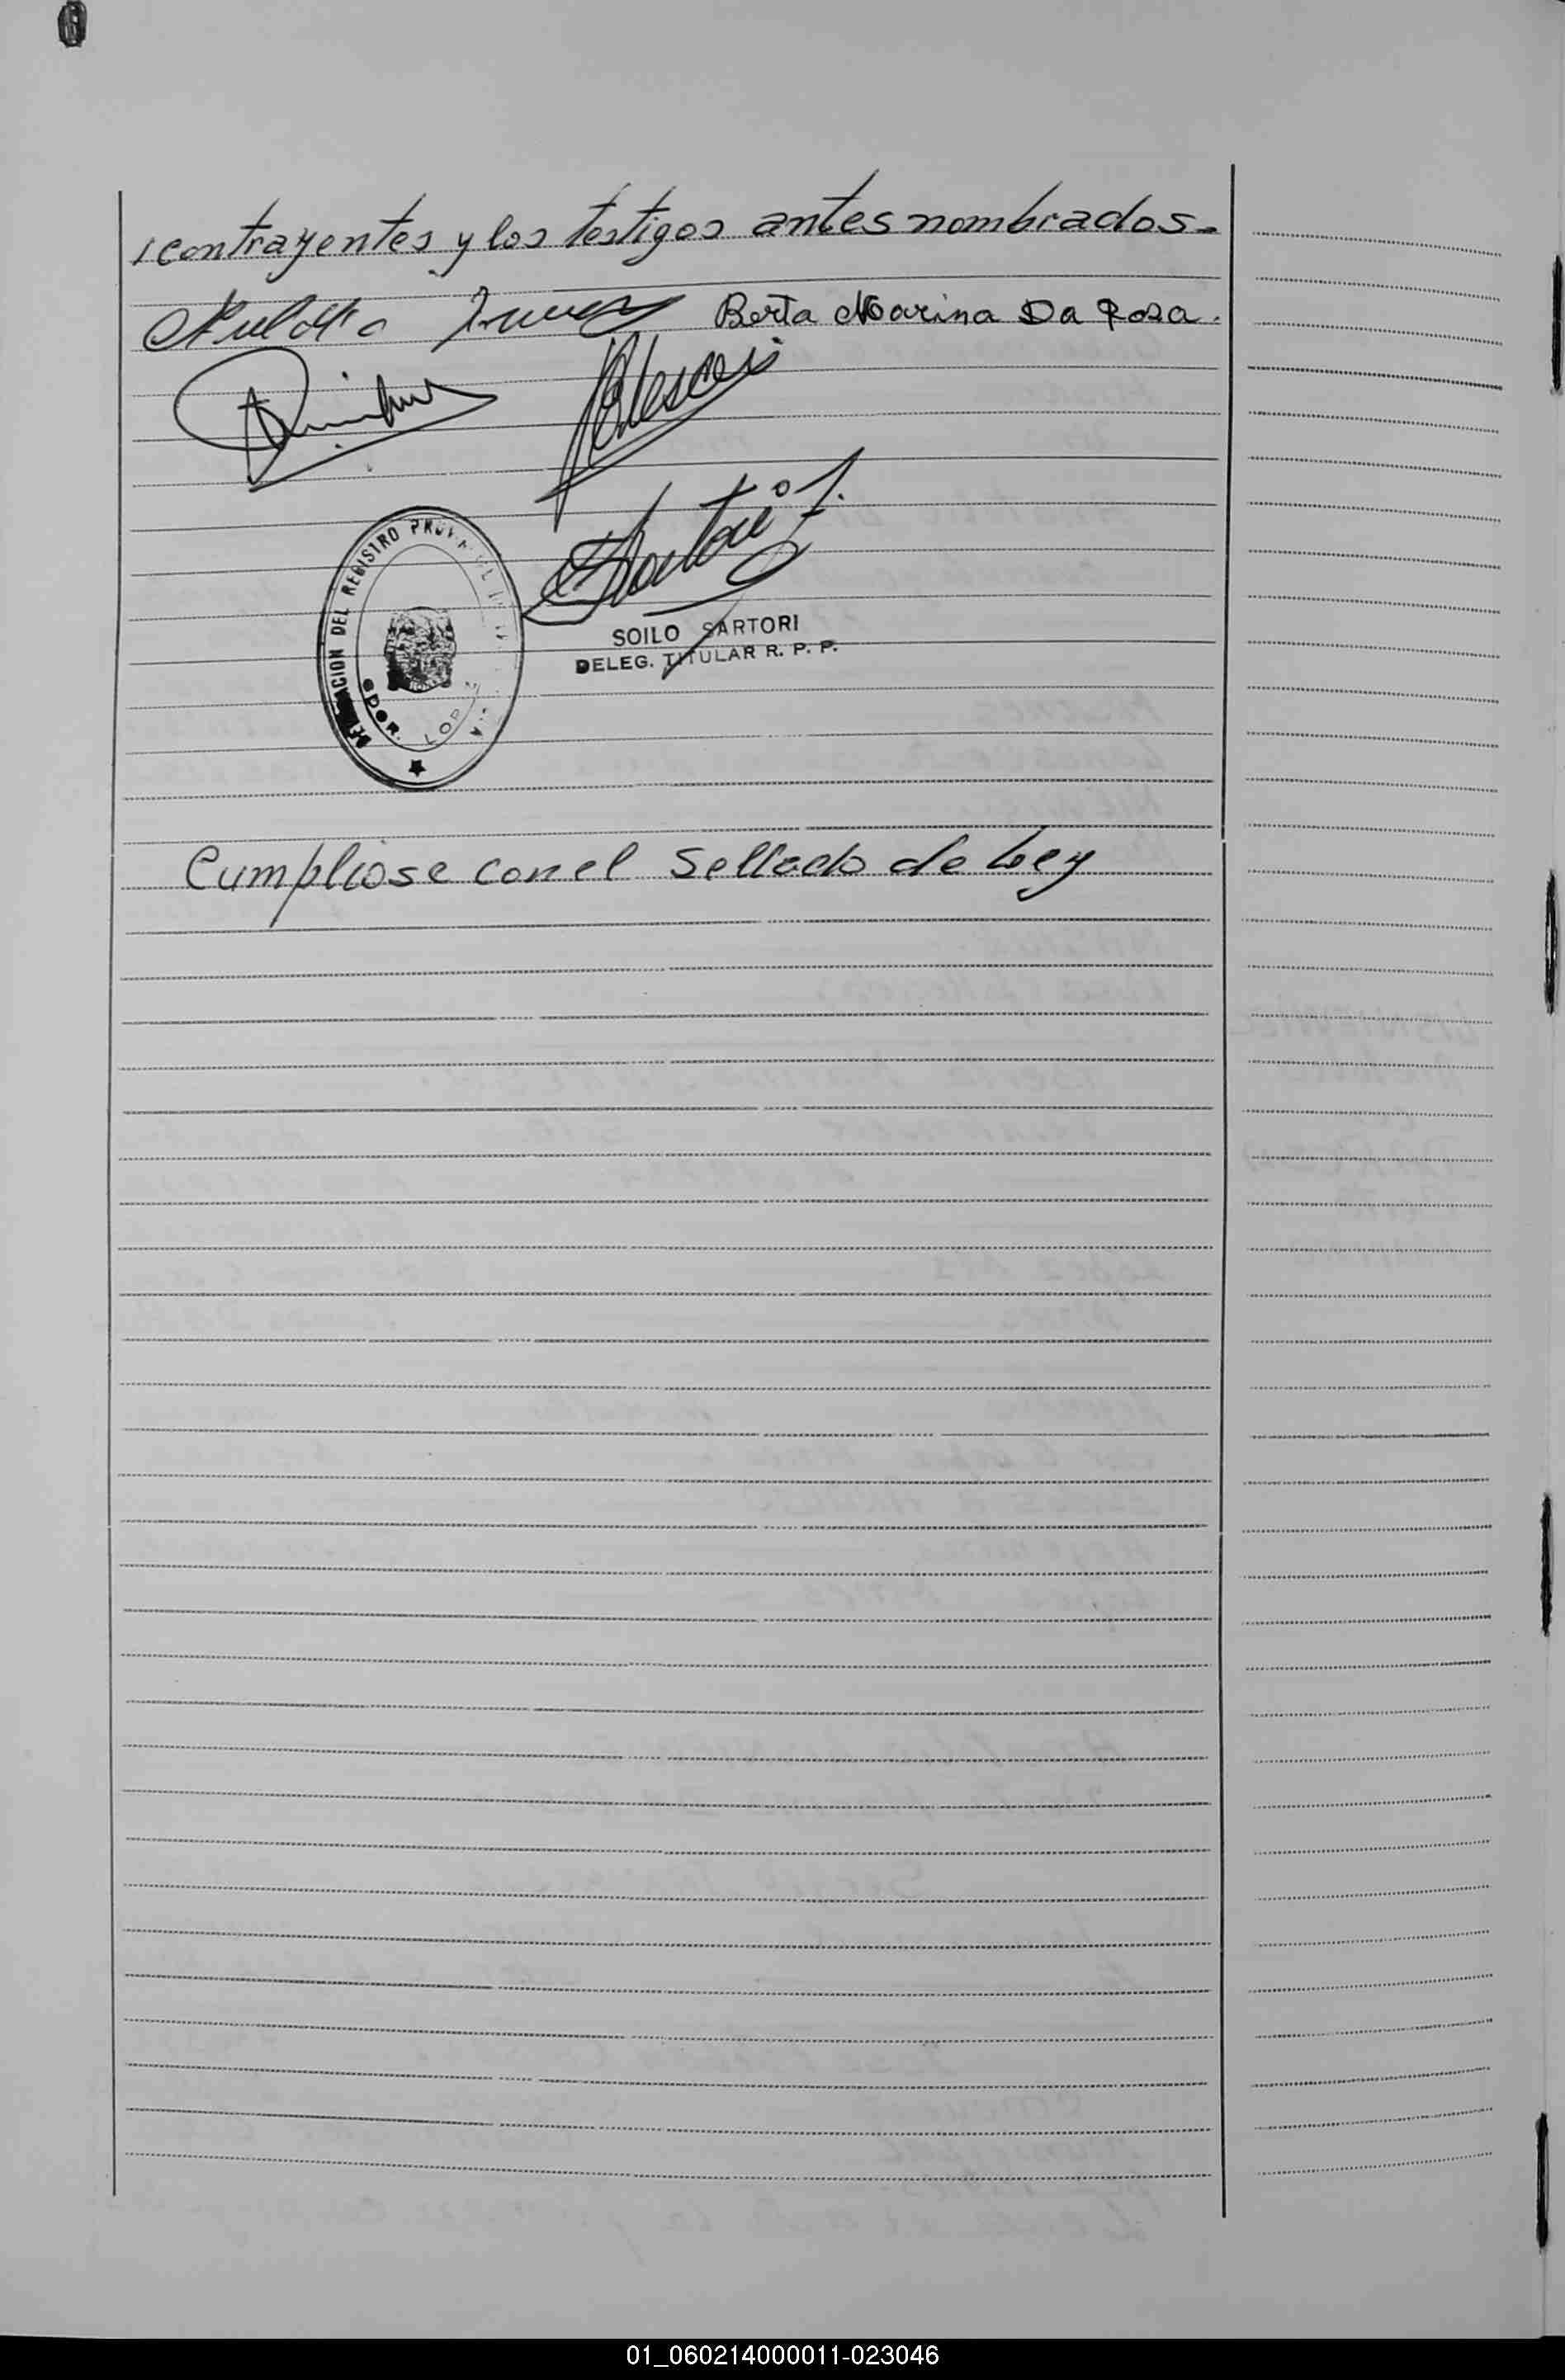 contrayentes y los testigos antes nombrados.-
Berta Marina Da Rosa.
DELEGACION DEL REGISTRO
GDOR. LOPEZ
SOILO SARTORI
DELEG. TITULAR R. P. P.
Cumpliose con el Sellado de Ley
01_060214000011-023046